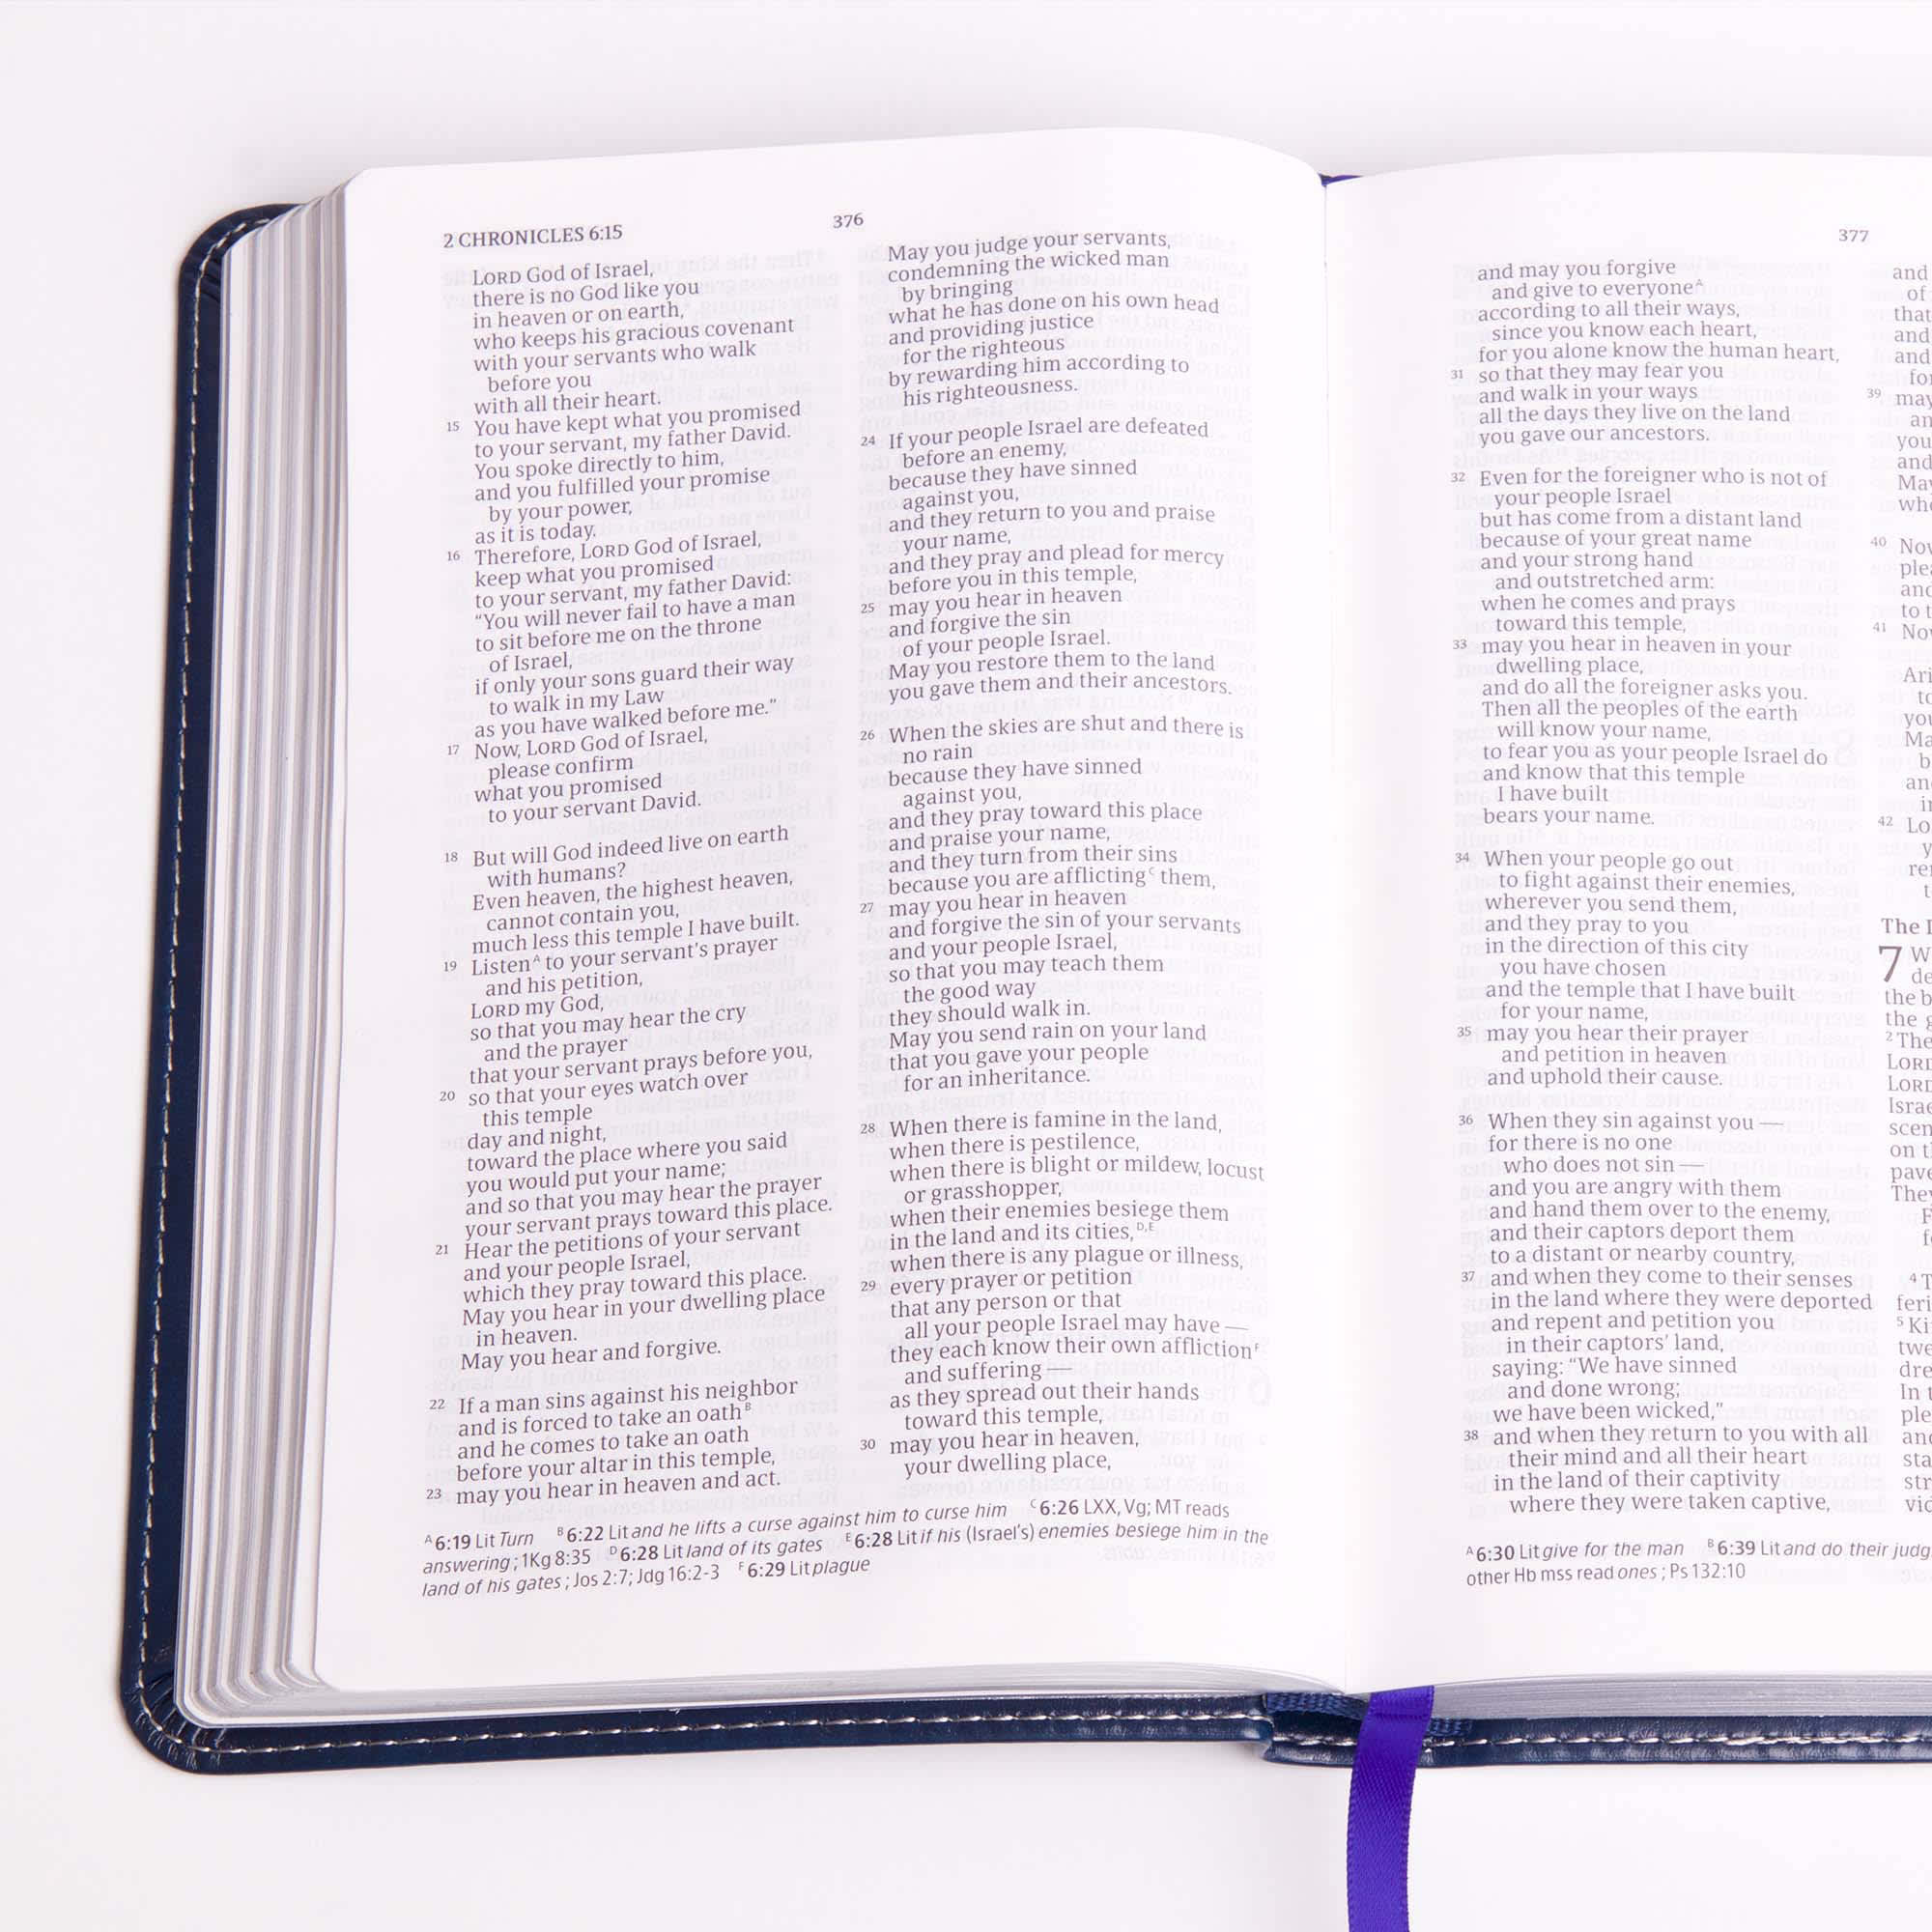 2 CHRONICLES 6:15
376
LORD God of Israel,
there is no God like you
in heaven or on earth,
who keeps his gracious covenant
with your servants who walk
before you
with all their heart.
15 You have kept what you promised
to your servant, my father David.
You spoke directly to him,
and you fulfilled your promise
by your power,
as it is today.
16 Therefore, LORD God of Israel,
keep what you promised
to your servant, my father David:
“You will never fail to have a man
to sit before me on the throne
of Israel,
if only your sons guard their way
to walk in my Law
as you have walked before me.”
17 Now, LORD God of Israel,
please confirm
what you promised
to your servant David.
18 But will God indeed live on earth
with humans?
Even heaven, the highest heaven,
cannot contain you,
much less this temple I have built.
19 Listen^A to your servant’s prayer
and his petition,
LORD my God,
so that you may hear the cry
and the prayer
that your servant prays before you,
20 so that your eyes watch over
this temple
day and night,
toward the place where you said
you would put your name;
and so that you may hear the prayer
your servant prays toward this place.
21 Hear the petitions of your servant
and your people Israel,
which they pray toward this place.
May you hear in your dwelling place
in heaven.
May you hear and forgive.
22 If a man sins against his neighbor
and is forced to take an oath^B
and he comes to take an oath
before your altar in this temple,
23 may you hear in heaven and act.
May you judge your servants,
condemning the wicked man
by bringing
what he has done on his own head
and providing justice
for the righteous
by rewarding him according to
his righteousness.
24 If your people Israel are defeated
before an enemy,
because they have sinned
against you,
and they return to you and praise
your name,
and they pray and plead for mercy
before you in this temple,
25 may you hear in heaven
and forgive the sin
of your people Israel.
May you restore them to the land
you gave them and their ancestors.
26 When the skies are shut and there is
no rain
because they have sinned
against you,
and they pray toward this place
and praise your name,
and they turn from their sins
because you are afflicting^C them,
27 may you hear in heaven
and forgive the sin of your servants
and your people Israel,
so that you may teach them
the good way
they should walk in.
May you send rain on your land
that you gave your people
for an inheritance.
28 When there is famine in the land,
when there is pestilence,
when there is blight or mildew, locust
or grasshopper,
when their enemies besiege them
in the land and its cities,^D,E
when there is any plague or illness,
29 every prayer or petition
that any person or that
all your people Israel may have —
they each know their own affliction^F
and suffering —
as they spread out their hands
toward this temple,
30 may you hear in heaven,
your dwelling place,
^A 6:19 Lit Turn ^B 6:22 Lit and he lifts a curse against him to curse him ^C 6:26 LXX, Vg; MT reads
answering; 1Kg 8:35 ^D 6:28 Lit land of its gates ^E 6:28 Lit if his (Israel’s) enemies besiege him in the
land of his gates; Jos 2:7; Jdg 16:2-3 ^F 6:29 Lit plague
377
and may you forgive
and give to everyone^A
according to all their ways,
since you know each heart,
for you alone know the human heart,
31 so that they may fear you
and walk in your ways
all the days they live on the land
you gave our ancestors.
32 Even for the foreigner who is not of
your people Israel
but has come from a distant land
because of your great name
and your strong hand
and outstretched arm:
when he comes and prays
toward this temple,
33 may you hear in heaven in your
dwelling place,
and do all the foreigner asks you.
Then all the peoples of the earth
will know your name,
to fear you as your people Israel do
and know that this temple
I have built
bears your name.
34 When your people go out
to fight against their enemies,
wherever you send them,
and they pray to you
in the direction of this city
you have chosen
and the temple that I have built
for your name,
35 may you hear their prayer
and petition in heaven
and uphold their cause.
36 When they sin against you —
for there is no one
who does not sin —
and you are angry with them
and hand them over to the enemy,
and their captors deport them
to a distant or nearby country,
37 and when they come to their senses
in the land where they were deported
and repent and petition you
in their captors’ land,
saying: “We have sinned
and done wrong;
we have been wicked,”
38 and when they return to you with all
their mind and all their heart
in the land of their captivity
where they were taken captive,
and
of
that
and
and
39 may
you
and
40
41
42
The
7
the
the
2 The
LORD
LORD
on
They
4
5
In
and
^A 6:30 Lit give for the man ^B 6:39 Lit and do their
other Hb mss read ones; Ps 132:10